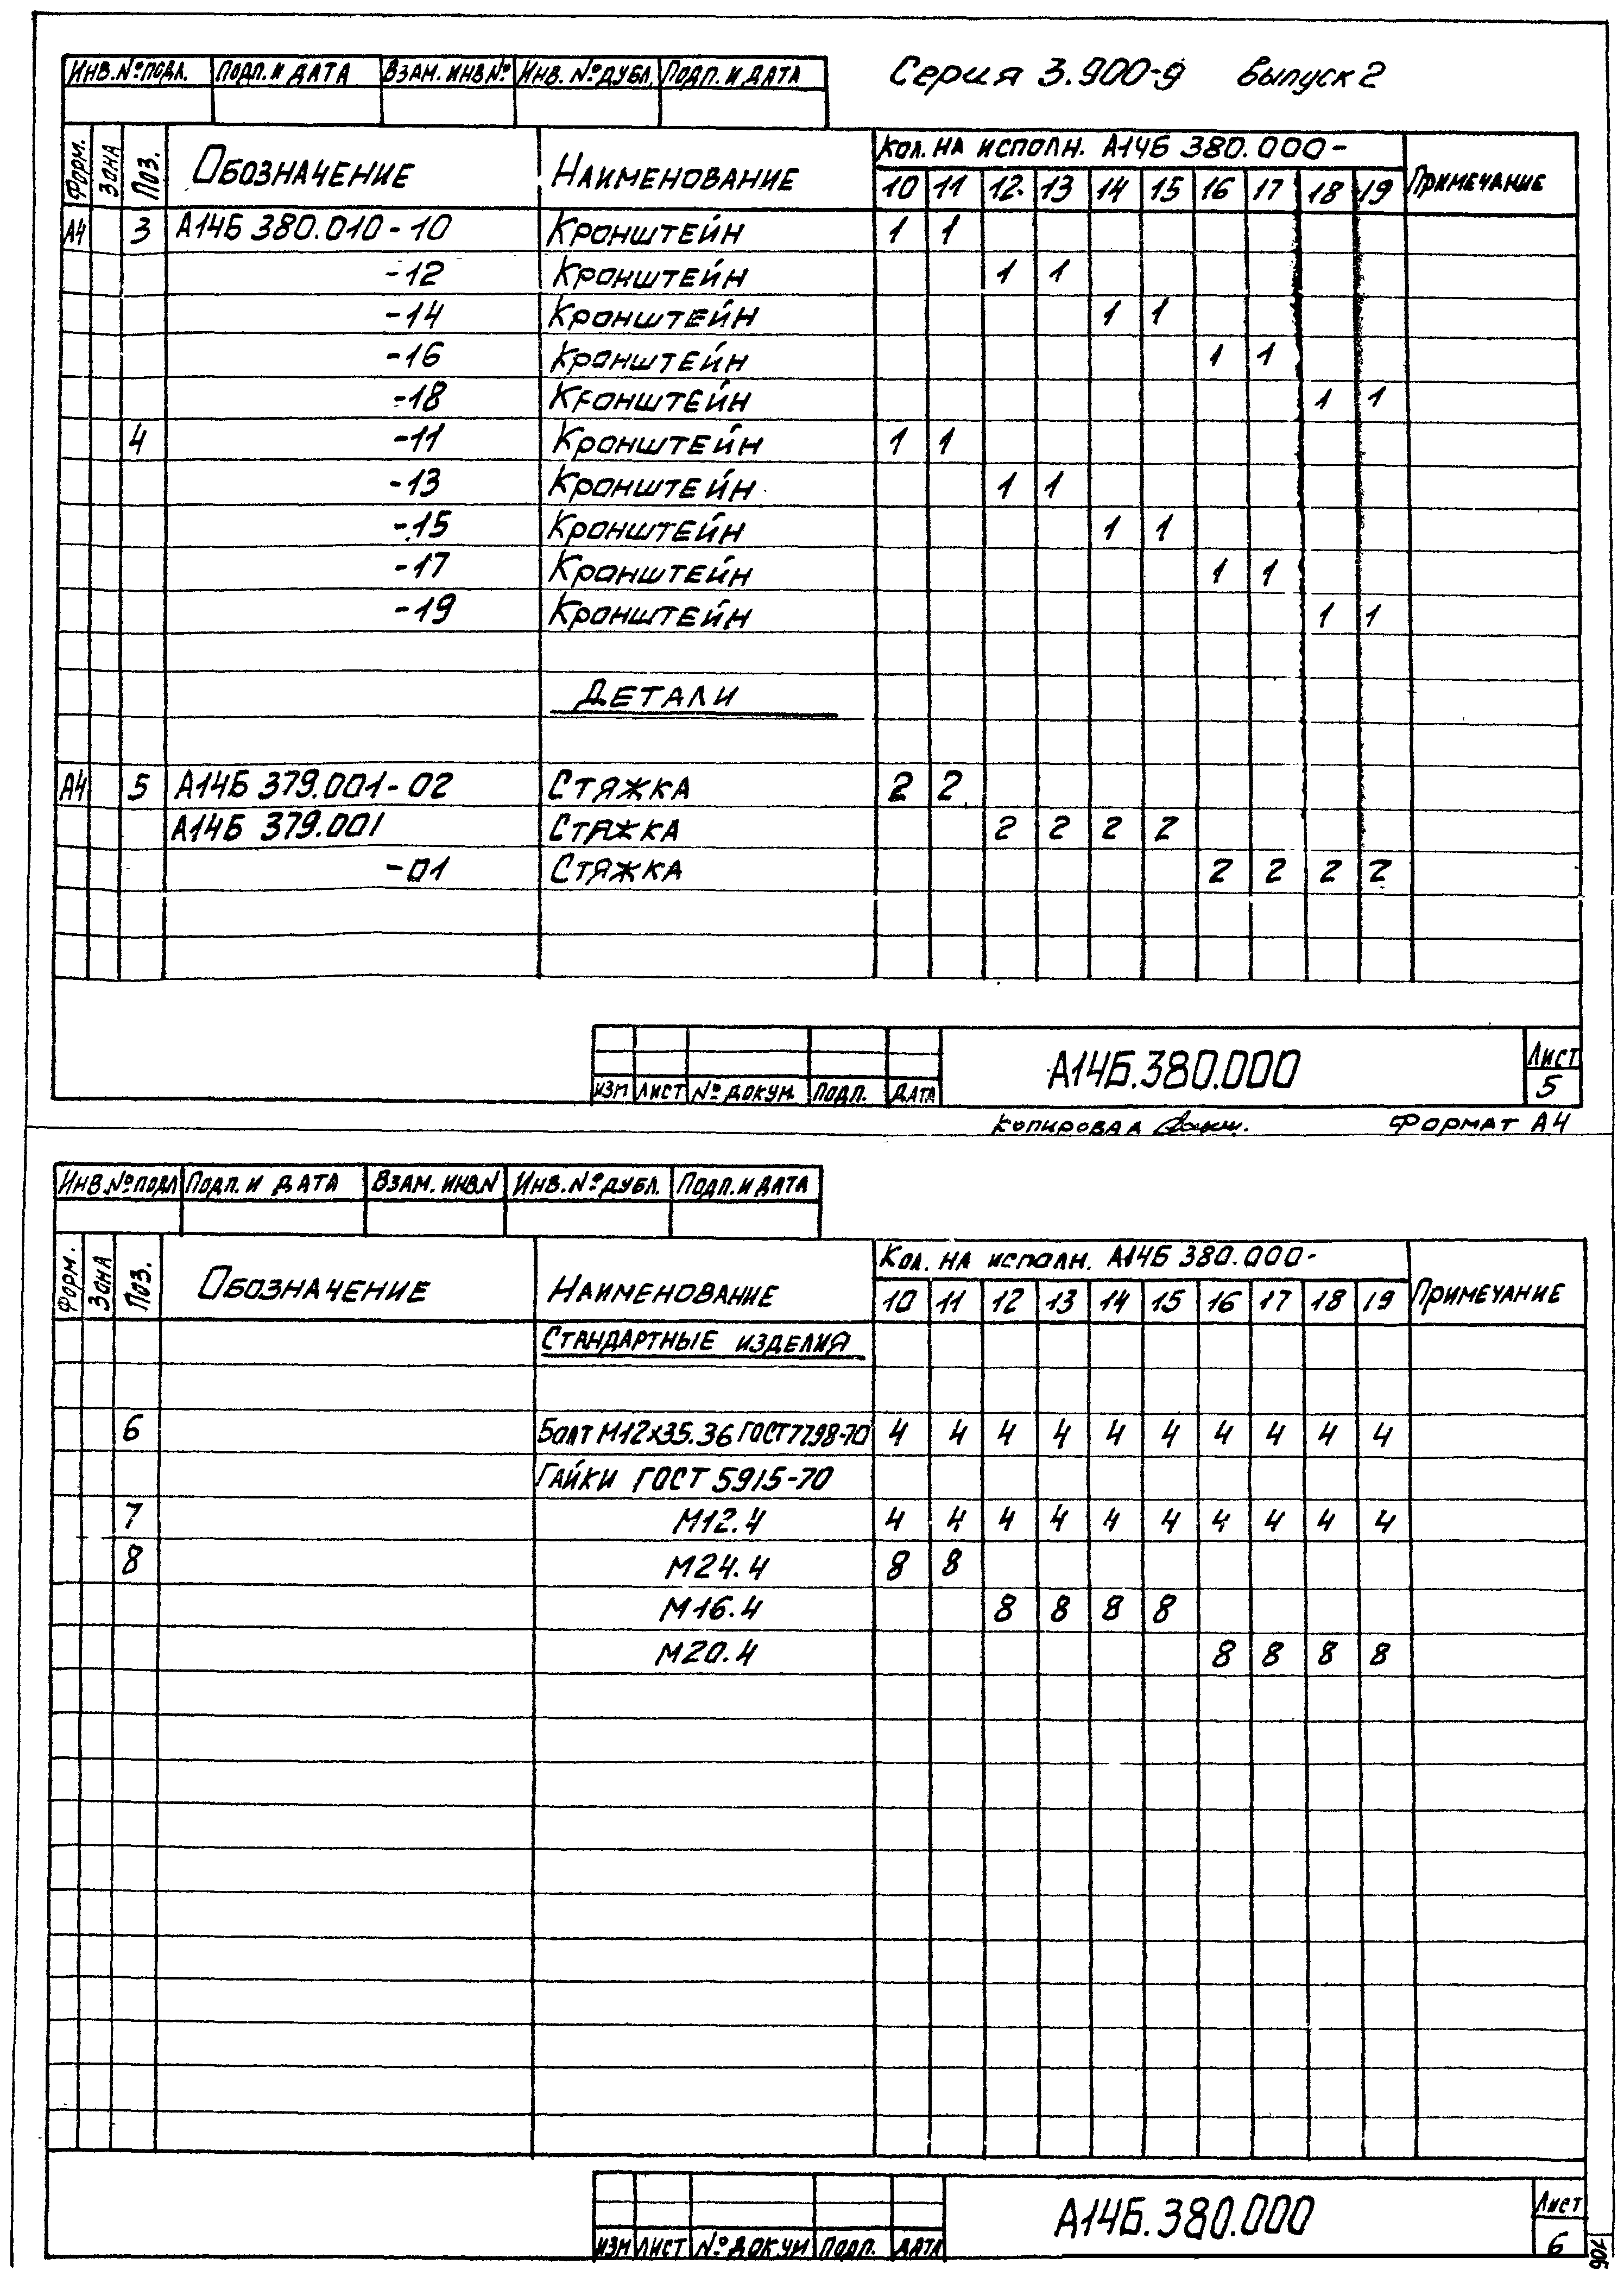 Инв.№подл. Подп. и дата Взам. инв№ Инв. №дубл. Подп. и дата Серия 3.900-9 выпуск 2
Форм. Зона Поз. Обозначение Наименование Кол. на исполн. А14Б 380.000- Примечание
10 11 12 13 14 15 16 17 18 19
А4 3 А14Б 380.010-10 Кронштейн 1 1
-12 Кронштейн 1 1
-14 Кронштейн 1 1
-16 Кронштейн 1 1
-18 Кронштейн 1 1
4 -11 Кронштейн 1 1
-13 Кронштейн 1 1
-15 Кронштейн 1 1
-17 Кронштейн 1 1
-19 Кронштейн 1 1
Детали
А4 5 А14Б 379.001-02 Стяжка 2 2
А14Б 379.001 Стяжка 2 2 2 2
-01 Стяжка 2 2 2 2
Изм Лист № докум. Подп. Дата А14Б.380.000 Лист 5
Копировал Формат А4
Инв.№подл Подп. и дата Взам. инв.N Инв.№дубл. Подп. и дата
Форм. Зона Поз. Обозначение Наименование Кол. на исполн. А14Б 380.000- Примечание
10 11 12 13 14 15 16 17 18 19
Стандартные изделия
6 Болт М12х35.36 ГОСТ7798-70 4 4 4 4 4 4 4 4 4 4
Гайки ГОСТ 5915-70
7 М12.4 4 4 4 4 4 4 4 4 4 4
8 М24.4 8 8
М16.4 8 8 8 8
М20.4 8 8 8 8
Изм Лист № докум Подп. Дата А14Б.380.000 Лист 6
106